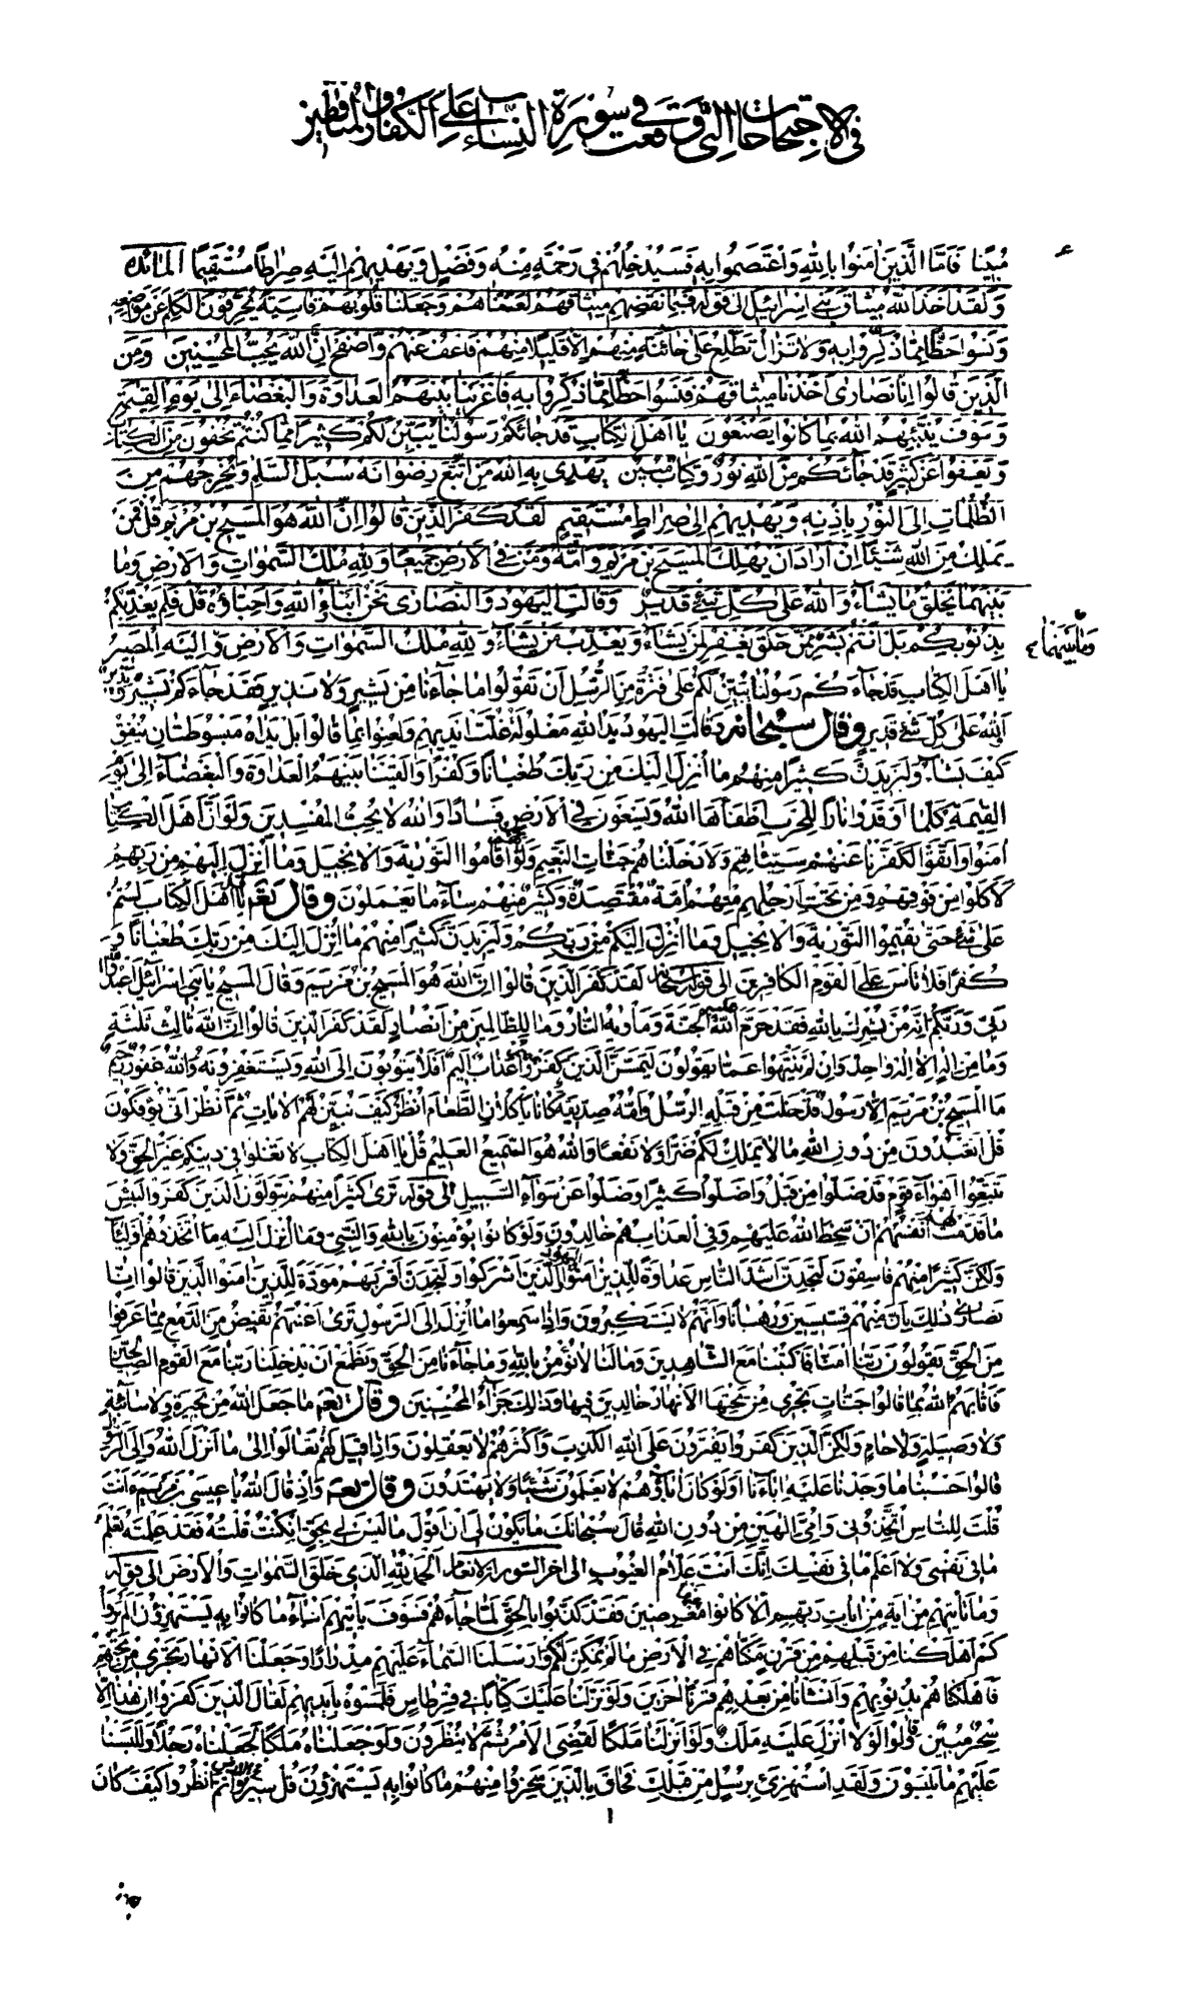 في الاحتجاجات التي وقعت في سورة النساء على الكفار والمنافقين
مُبينًا فَاَمَّا الَّذينَ اٰمَنُوا بِاللهِ وَاعْتَصَمُوا بِهِ فَسَيُدْخِلُهُمْ في رَحْمَةٍ مِنْهُ وَفَضْلٍ وَيَهْديهِمْ اِلَيْهِ صِراطًا مُسْتَقيمًا المائده
وَلَقَدْ اَخَذَ اللهُ ميثاقَ بَني اِسْرائيلَ الى قوله فَبِما نَقْضِهِمْ ميثاقَهُمْ لَعَنّاهُمْ وَجَعَلْنا قُلُوبَهُمْ قاسِيَةً يُحَرِّفُونَ الْكَلِمَ عَنْ مَواضِعِهِ
وَنَسُوا حَظًّا مِمّا ذُكِّرُوا بِهِ وَلا تَزالُ تَطَّلِعُ عَلى خائِنَةٍ مِنْهُمْ اِلّا قَليلًا مِنْهُمْ فَاعْفُ عَنْهُمْ وَاصْفَحْ اِنَّ اللهَ يُحِبُّ الْمُحْسِنينَ وَمِنَ
الَّذينَ قالُوا اِنّا نَصارى اَخَذْنا ميثاقَهُمْ فَنَسُوا حَظًّا مِمّا ذُكِّرُوا بِهِ فَاَغْرَيْنا بَيْنَهُمُ الْعَداوَةَ وَالْبَغْضاءَ اِلى يَوْمِ الْقِيٰمَةِ
وَسَوْفَ يُنَبِّئُهُمُ اللهُ بِما كانُوا يَصْنَعُونَ يا اَهْلَ الْكِتابِ قَدْ جائَكُمْ رَسُولُنا يُبَيِّنُ لَكُمْ كَثيرًا مِمّا كُنْتُمْ تُخْفُونَ مِنَ الْكِتابِ
وَيَعْفُوا عَنْ كَثيرٍ قَدْ جائَكُمْ مِنَ اللهِ نُورٌ وَكِتابٌ مُبينٌ يَهْدي بِهِ اللهُ مَنِ اتَّبَعَ رِضْوانَهُ سُبُلَ السَّلامِ وَيُخْرِجُهُمْ مِنَ
الظُّلُماتِ اِلَى النُّورِ بِاِذْنِهِ وَيَهْديهِمْ اِلى صِراطٍ مُسْتَقيمٍ لَقَدْ كَفَرَ الَّذينَ قالُوا اِنَّ اللهَ هُوَ الْمَسيحُ بْنُ مَرْيَمَ قُلْ فَمَنْ
يَمْلِكُ مِنَ اللهِ شَيْئًا اِنْ اَرادَ اَنْ يُهْلِكَ الْمَسيحَ بْنَ مَرْيَمَ وَاُمَّهُ وَمَنْ فِي الْاَرْضِ جَميعًا وَلِلهِ مُلْكُ السَّمٰواتِ وَالْاَرْضِ وَما
بَيْنَهُما يَخْلُقُ ما يَشاءُ وَاللهُ عَلى كُلِّ شَيْءٍ قَديرٌ وَقالَتِ الْيَهُودُ وَالنَّصارى نَحْنُ اَبْناءُ اللهِ وَاَحِبّاؤُهُ قُلْ فَلِمَ يُعَذِّبُكُمْ
بِذُنُوبِكُمْ بَلْ اَنْتُمْ بَشَرٌ مِمَّنْ خَلَقَ يَغْفِرُ لِمَنْ يَشاءُ وَيُعَذِّبُ مَنْ يَشاءُ وَلِلهِ مُلْكُ السَّمٰواتِ وَالْاَرْضِ وَاِلَيْهِ الْمَصيرُ
وما بينهما
يا اَهْلَ الْكِتابِ قَدْ جاءَكُمْ رَسُولُنا يُبَيِّنُ لَكُمْ عَلى فَتْرَةٍ مِنَ الرُّسُلِ اَنْ تَقُولُوا ما جاءَنا مِنْ بَشيرٍ وَلا نَذيرٍ فَقَدْ جاءَكُمْ بَشيرٌ وَنَذيرٌ
وَاللهُ عَلى كُلِّ شَيْءٍ قَديرٌ وقال سبحانه وَقالَتِ الْيَهُودُ يَدُ اللهِ مَغْلُولَةٌ غُلَّتْ اَيْديهِمْ وَلُعِنُوا بِما قالُوا بَلْ يَداهُ مَبْسُوطَتانِ يُنْفِقُ
كَيْفَ يَشاءُ وَلَيَزيدَنَّ كَثيرًا مِنْهُمْ ما اُنْزِلَ اِلَيْكَ مِنْ رَبِّكَ طُغْيانًا وَكُفْرًا وَاَلْقَيْنا بَيْنَهُمُ الْعَداوَةَ وَالْبَغْضاءَ اِلى يَوْمِ
الْقِيٰمَةِ كُلَّما اَوْقَدُوا نارًا لِلْحَرْبِ اَطْفَأَهَا اللهُ وَيَسْعَوْنَ فِي الْاَرْضِ فَسادًا وَاللهُ لا يُحِبُّ الْمُفْسِدينَ وَلَوْ اَنَّ اَهْلَ الْكِتابِ
اٰمَنُوا وَاتَّقَوْا لَكَفَّرْنا عَنْهُمْ سَيِّئاتِهِمْ وَلَاَدْخَلْناهُمْ جَنّاتِ النَّعيمِ وَلَوْ اَنَّهُمْ اَقامُوا التَّوْريةَ وَالْاِنْجيلَ وَما اُنْزِلَ اِلَيْهِمْ مِنْ رَبِّهِمْ
لَاَكَلُوا مِنْ فَوْقِهِمْ وَمِنْ تَحْتِ اَرْجُلِهِمْ مِنْهُمْ اُمَّةٌ مُقْتَصِدَةٌ وَكَثيرٌ مِنْهُمْ ساءَ ما يَعْمَلُونَ وقال تعم قل يا اَهْلَ الْكِتابِ لَسْتُمْ
عَلى شَيْءٍ حَتّى تُقيمُوا التَّوْريةَ وَالْاِنْجيلَ وَما اُنْزِلَ اِلَيْكُمْ مِنْ رَبِّكُمْ وَلَيَزيدَنَّ كَثيرًا مِنْهُمْ ما اُنْزِلَ اِلَيْكَ مِنْ رَبِّكَ طُغْيانًا وَ
كُفْرًا فَلا تَأْسَ عَلَى الْقَوْمِ الْكافِرينَ الى قوله سبحانه لَقَدْ كَفَرَ الَّذينَ قالُوا اِنَّ اللهَ هُوَ الْمَسيحُ بْنُ مَرْيَمَ وَقالَ الْمَسيحُ يا بَني اِسْرائيلَ اعْبُدُوا اللهَ
رَبّي وَرَبَّكُمْ اِنَّهُ مَنْ يُشْرِكْ بِاللهِ فَقَدْ حَرَّمَ اللهُ عليه الْجَنَّةَ وَمَأْويهُ النّارُ وَما لِلظّالِمينَ مِنْ اَنْصارٍ لَقَدْ كَفَرَ الَّذينَ قالُوا اِنَّ اللهَ ثالِثُ ثَلٰثَةٍ
وَما مِنْ اِلٰهٍ اِلّا اِلٰهٌ واحِدٌ وَاِنْ لَمْ يَنْتَهُوا عَمّا يَقُولُونَ لَيَمَسَّنَّ الَّذينَ كَفَرُوا مِنْهُمْ عَذابٌ اَليمٌ اَفَلا يَتُوبُونَ اِلَى اللهِ وَيَسْتَغْفِرُونَهُ وَاللهُ غَفُورٌ رَحيمٌ
مَا الْمَسيحُ بْنُ مَرْيَمَ اِلّا رَسُولٌ قَدْ خَلَتْ مِنْ قَبْلِهِ الرُّسُلُ وَاُمُّهُ صِدّيقَةٌ كانا يَأْكُلانِ الطَّعامَ اُنْظُرْ كَيْفَ نُبَيِّنُ لَهُمُ الْاٰياتِ ثُمَّ انْظُرْ اَنّى يُؤْفَكُونَ
قُلْ اَتَعْبُدُونَ مِنْ دُونِ اللهِ ما لا يَمْلِكُ لَكُمْ ضَرًّا وَلا نَفْعًا وَاللهُ هُوَ السَّميعُ الْعَليمُ قُلْ يا اَهْلَ الْكِتابِ لا تَغْلُوا في دينِكُمْ غَيْرَ الْحَقِّ وَلا
تَتَّبِعُوا اَهْواءَ قَوْمٍ قَدْ ضَلُّوا مِنْ قَبْلُ وَاَضَلُّوا كَثيرًا وَضَلُّوا عَنْ سَواءِ السَّبيلِ الى قوله تَرى كَثيرًا مِنْهُمْ يَتَوَلَّوْنَ الَّذينَ كَفَرُوا لَبِئْسَ
ما قَدَّمَتْ لهم اَنْفُسُهُمْ اَنْ سَخِطَ اللهُ عَلَيْهِمْ وَفِي الْعَذابِ هُمْ خالِدُونَ وَلَوْ كانُوا يُؤْمِنُونَ بِاللهِ وَالنَّبِيِّ وَما اُنْزِلَ اِلَيْهِ مَا اتَّخَذُوهُمْ اَوْلِياءَ
وَلٰكِنَّ كَثيرًا مِنْهُمْ فاسِقُونَ لَتَجِدَنَّ اَشَدَّ النّاسِ عَداوَةً لِلَّذينَ اٰمَنُوا اليهود وَالَّذينَ اَشْرَكُوا وَلَتَجِدَنَّ اَقْرَبَهُمْ مَوَدَّةً لِلَّذينَ اٰمَنُوا الَّذينَ قالُوا اِنّا
نَصارى ذٰلِكَ بِاَنَّ مِنْهُمْ قِسّيسينَ وَرُهْبانًا وَاَنَّهُمْ لا يَسْتَكْبِرُونَ وَاِذا سَمِعُوا ما اُنْزِلَ اِلَى الرَّسُولِ تَرى اَعْيُنَهُمْ تَفيضُ مِنَ الدَّمْعِ مِمّا عَرَفُوا
مِنَ الْحَقِّ يَقُولُونَ رَبَّنا اٰمَنّا فَاكْتُبْنا مَعَ الشّاهِدينَ وَما لَنا لا نُؤْمِنُ بِاللهِ وَما جاءَنا مِنَ الْحَقِّ وَنَطْمَعُ اَنْ يُدْخِلَنا رَبُّنا مَعَ الْقَوْمِ الصّالِحينَ
فَاَثابَهُمُ اللهُ بِما قالُوا جَنّاتٍ تَجْري مِنْ تَحْتِهَا الْاَنْهارُ خالِدينَ فيها وَذٰلِكَ جَزاءُ الْمُحْسِنينَ وقال تعم ما جَعَلَ اللهُ مِنْ بَحيرَةٍ وَلا سائِبَةٍ
وَلا وَصيلَةٍ وَلا حامٍ وَلٰكِنَّ الَّذينَ كَفَرُوا يَفْتَرُونَ عَلَى اللهِ الْكَذِبَ وَاَكْثَرُهُمْ لا يَعْقِلُونَ وَاِذا قيلَ لَهُمْ تَعالَوْا اِلى ما اَنْزَلَ اللهُ وَاِلَى الرَّسُولِ
قالُوا حَسْبُنا ما وَجَدْنا عَلَيْهِ اٰباءَنا اَوَلَوْ كانَ اٰباؤُهُمْ لا يَعْلَمُونَ شَيْئًا وَلا يَهْتَدُونَ وقال تعم وَاِذْ قالَ اللهُ يا عيسَى بْنَ مَرْيَمَ ءَاَنْتَ
قُلْتَ لِلنّاسِ اتَّخِذُوني وَاُمِّيَ اِلٰهَيْنِ مِنْ دُونِ اللهِ قالَ سُبْحانَكَ ما يَكُونُ لي اَنْ اَقُولَ ما لَيْسَ لي بِحَقٍّ اِنْ كُنْتُ قُلْتُهُ فَقَدْ عَلِمْتَهُ تَعْلَمُ
ما في نَفْسي وَلا اَعْلَمُ ما في نَفْسِكَ اِنَّكَ اَنْتَ عَلّامُ الْغُيُوبِ الى اخر السورة الانعام اَلْحَمْدُ لِلهِ الَّذي خَلَقَ السَّمٰواتِ وَالْاَرْضَ الى قوله
وَما تَأْتيهِمْ مِنْ اٰيَةٍ مِنْ اٰياتِ رَبِّهِمْ اِلّا كانُوا عنها مُعْرِضينَ فَقَدْ كَذَّبُوا بِالْحَقِّ لَمّا جاءَهُمْ فَسَوْفَ يَأْتيهِمْ اَنْباءُ ما كانُوا بِهِ يَسْتَهْزِؤُنَ اَلَمْ يَرَوْا
كَمْ اَهْلَكْنا مِنْ قَبْلِهِمْ مِنْ قَرْنٍ مَكَّنّاهُمْ فِي الْاَرْضِ ما لَمْ نُمَكِّنْ لَكُمْ وَاَرْسَلْنَا السَّماءَ عَلَيْهِمْ مِدْرارًا وَجَعَلْنَا الْاَنْهارَ تَجْري مِنْ تَحْتِهِمْ
فَاَهْلَكْناهُمْ بِذُنُوبِهِمْ وَاَنْشَأْنا مِنْ بَعْدِهِمْ قَرْنًا اٰخَرينَ وَلَوْ نَزَّلْنا عَلَيْكَ كِتابًا في قِرْطاسٍ فَلَمَسُوهُ بِاَيْديهِمْ لَقالَ الَّذينَ كَفَرُوا اِنْ هٰذا اِلّا
سِحْرٌ مُبينٌ وَقالُوا لَوْلا اُنْزِلَ عَلَيْهِ مَلَكٌ وَلَوْ اَنْزَلْنا مَلَكًا لَقُضِيَ الْاَمْرُ ثُمَّ لا يُنْظَرُونَ وَلَوْ جَعَلْناهُ مَلَكًا لَجَعَلْناهُ رَجُلًا وَلَلَبَسْنا
عَلَيْهِمْ ما يَلْبِسُونَ وَلَقَدِ اسْتُهْزِئَ بِرُسُلٍ مِنْ قَبْلِكَ فَحاقَ بِالَّذينَ سَخِرُوا مِنْهُمْ ما كانُوا بِهِ يَسْتَهْزِؤُنَ قُلْ سيرُوا في الارض ثُمَّ انْظُرُوا كَيْفَ كانَ
١